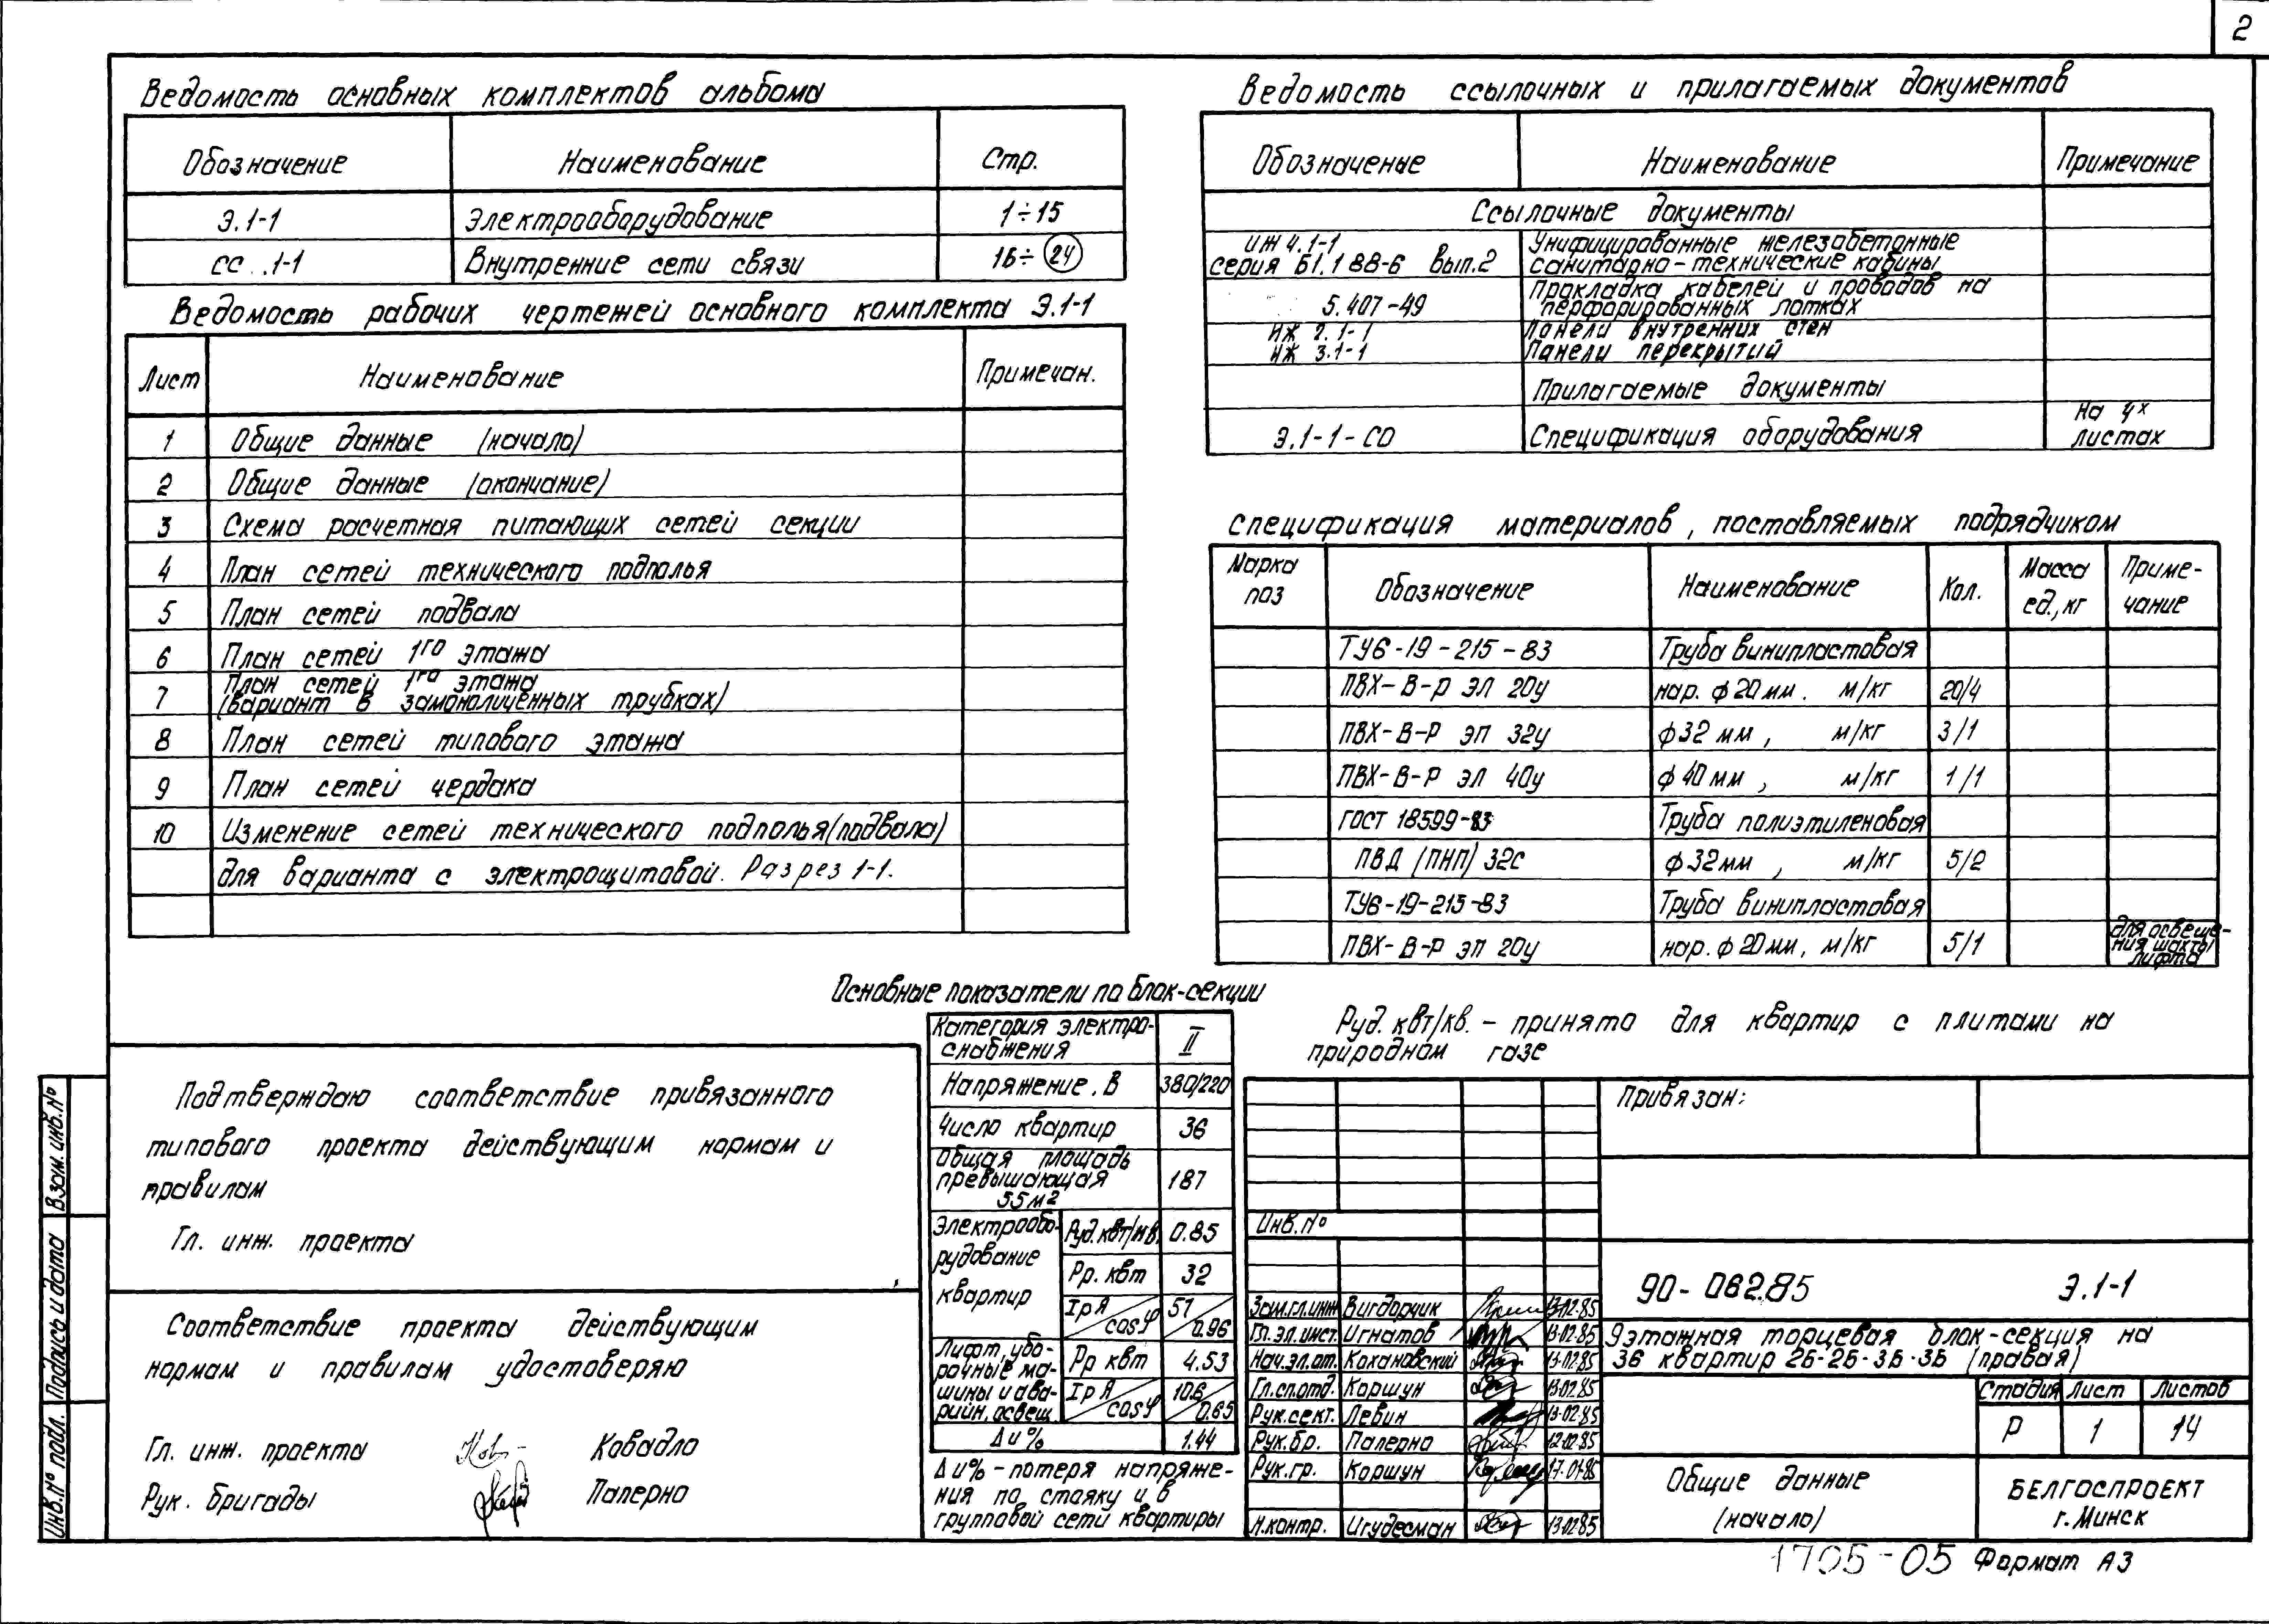 2
Ведомость основных комплектов альбома
Обозначение Наименование Стр.
Э.1-1 Электрооборудование 1÷15
СС..1-1 Внутренние сети связи 16÷24
Ведомость рабочих чертежей основного комплекта Э.1-1
Лист Наименование Примечан.
1 Общие данные (начало)
2 Общие данные (окончание)
3 Схема расчетная питающих сетей секции
4 План сетей технического подполья
5 План сетей подвала
6 План сетей 1го этажа
7 План сетей 1го этажа
(вариант в замоноличенных трубках)
8 План сетей типового этажа
9 План сетей чердака
10 Изменение сетей технического подполья (подвала)
для варианта с электрощитовой. Разрез 1-1.
Ведомость ссылочных и прилагаемых документов
Обозначение Наименование Примечание
Ссылочные документы
ИЖ 4.1-1 Унифицированные железобетонные
серия Б1.188-6 Вып.2 санитарно-технические кабины
5.407-49 Прокладка кабелей и проводов на
перфорированных лотках
ИЖ 2.1-1 Панели внутренних стен
ИЖ 3.1-1 Панели перекрытий
Прилагаемые документы
Э.1-1-СО Спецификация оборудования На 4х
листах
Спецификация материалов, поставляемых подрядчиком
Марка поз Обозначение Наименование Кол. Масса ед., кг Приме-
чание
ТУ6-19-215-83 Труба винипластовая
ПВХ-В-Р ЭЛ 20у нар. ф 20 мм. м/кг 20/4
ПВХ-В-Р ЭП 32у ф 32 мм, м/кг 3/1
ПВХ-В-Р ЭЛ 40у ф 40 мм, м/кг 1/1
ГОСТ 18599-83 Труба полиэтиленовая
ПВД (ПНП) 32С ф 32мм, м/кг 5/2
ТУ6-19-215-83 Труба винипластовая
ПВХ-В-Р ЭП 20у нар. ф 20мм, м/кг 5/1 для освеще-
ния шахты
лифта
Основные показатели по блок-секции
Категория электро-
снабжения II
Напряжение. В 380/220
Число квартир 36
Общая площадь
превышающая
55м2 187
Электрообо-
рудование
квартир
Руд. квт/кв. 0.85
Рр. квт 32
Iр А/cosφ 51/0.96
Лифт, убо-
рочные ма-
шины и ава-
рийн. освещ.
Рр квт 4.53
Iр А/cosφ 10.6/0.65
Δu% 1.44
Δu% - потеря напряже-
ния по стояку и в
групповой сети квартиры
Руд. квт/кв. - принято для квартир с плитами на
природном газе
Подтверждаю соответствие привязанного
типового проекта действующим нормам и
правилам
Гл. инж. проекта
Соответствие проекта действующим
нормам и правилам удостоверяю
Гл. инж. проекта Ковадло
Рук. бригады Палерно
Взам. инв. №
Подпись и дата
Инв. № подл.
Привязан:
Инв. №
Зам.гл.инж Вигдорчик 13.02.85
Гл.эл.инст. Игнатов 13.02.85
Нач.эл.от. Кохановский 13.02.85
Гл.сп.отд. Коршун 13.02.85
Рук.сект. Левин 13.02.85
Рук.бр. Палерно 12.02.85
Рук.гр. Коршун 17.01.85
Н.контр. Игудесман 13.02.85
90-062.85 Э.1-1
9этажная торцевая блок-секция на
36 квартир 2Б-2Б-3Б-3Б (правая)
Стадия Лист Листов
Р 1 14
Общие данные
(начало)
БЕЛГОСПРОЕКТ
г. Минск
1705-05 Формат А3